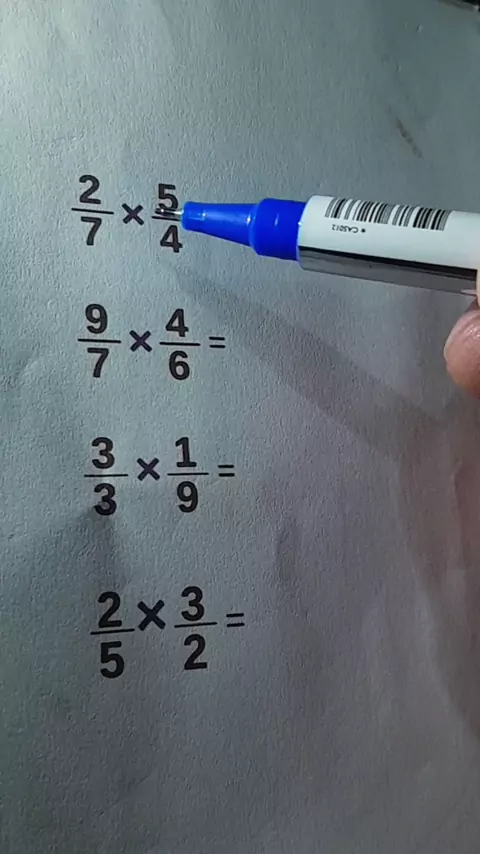 2/7 × 5/4
9/7 × 4/6 =
3/3 × 1/9 =
2/5 × 3/2 =
CAS012